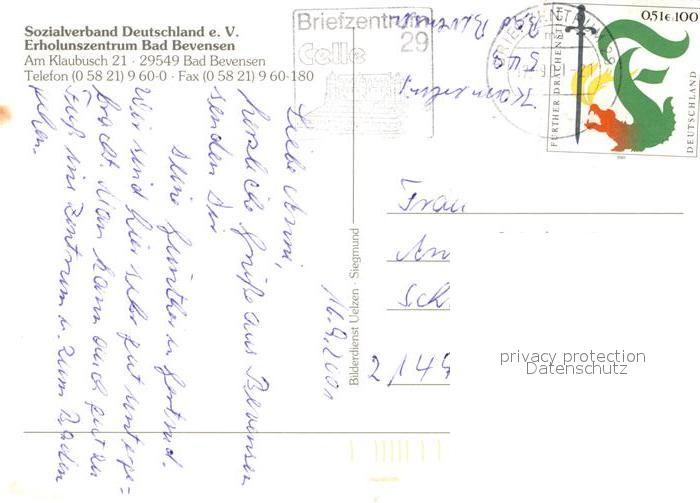 Sozialverband Deutschland e. V.
Erholunszentrum Bad Bevensen
Am Klaubusch 21 · 29549 Bad Bevensen
Telefon (0 58 21) 9 60-0 · Fax (0 58 21) 9 60-180
Briefzentrum
29
Celle
BRIEFZENTRUM
0,51€ 100
FURTHER DRACHENSTICH
DEUTSCHLAND
Bad Bevensen
16.9.2001
Liebe Anni,
herzliche Grüße aus Bevensen
senden Dir
Günther u. Gertrud.
Wir sind hier sehr gut unterge=
bracht. Man kann auch gut zu
Fuß ins Zentrum u. zum Baden
gehen.
Bilderdienst Uelzen · Siegmund
Frau
An
Sch
2144
privacy protection
Datenschutz